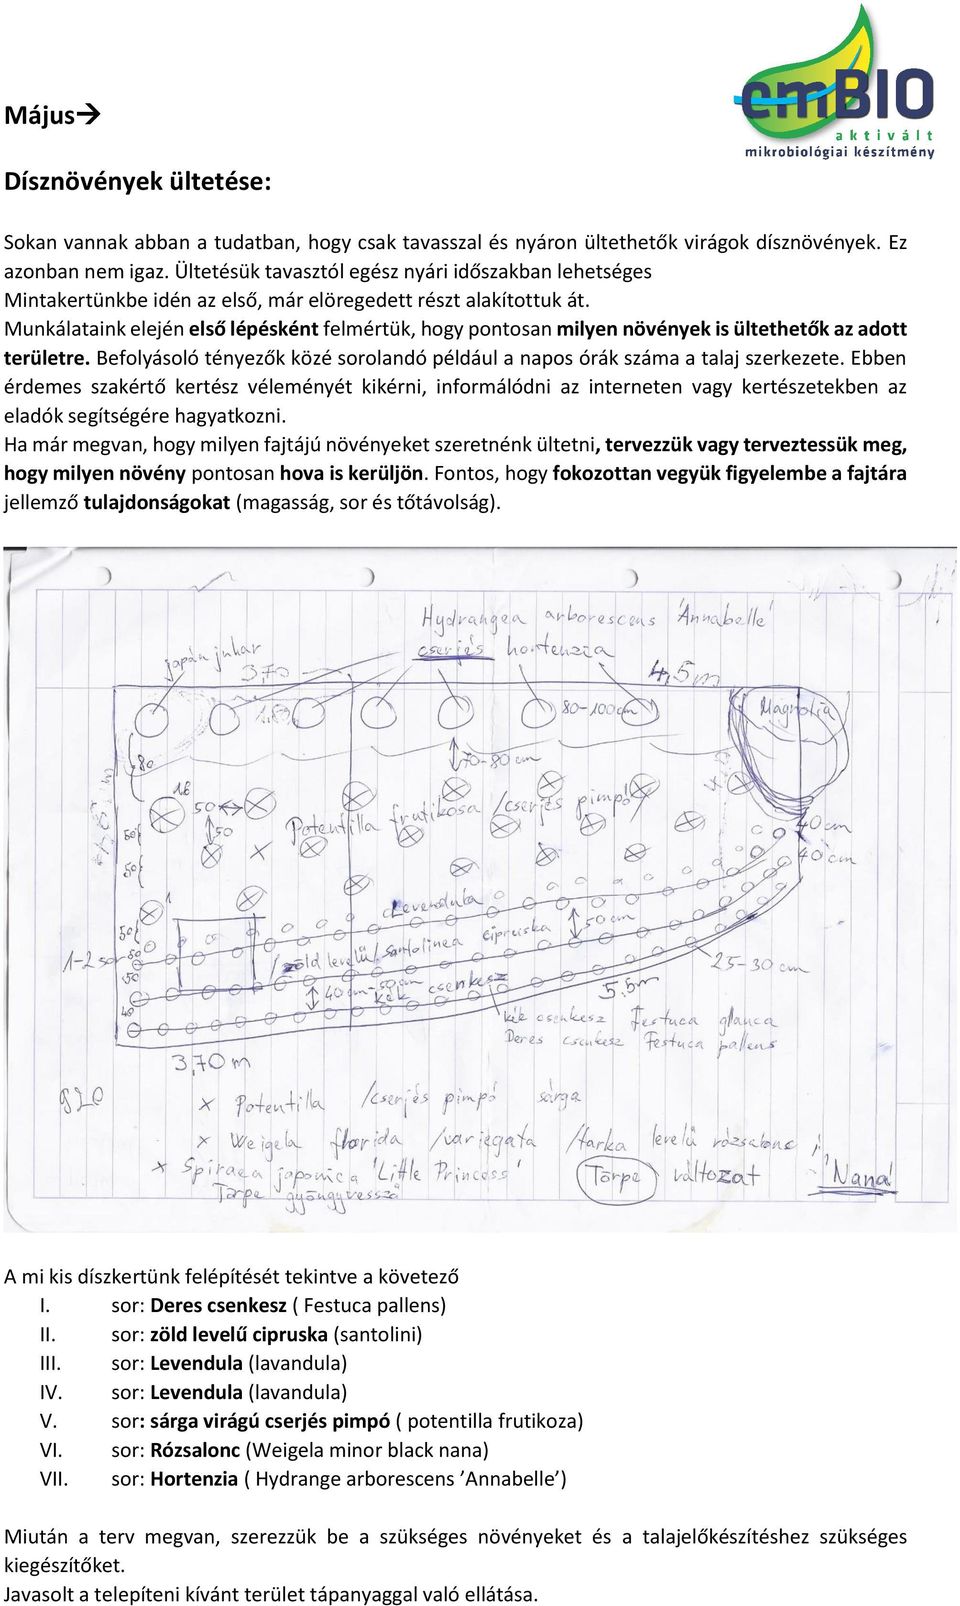 emBIO
aktivált
mikrobiológiai készítmény
Május→
Dísznövények ültetése:
Sokan vannak abban a tudatban, hogy csak tavasszal és nyáron ültethetők virágok dísznövények. Ez
azonban nem igaz. Ültetésük tavasztól egész nyári időszakban lehetséges
Mintakertünkbe idén az első, már elöregedett részt alakítottuk át.
Munkálataink elején első lépésként felmértük, hogy pontosan milyen növények is ültethetők az adott
területre. Befolyásoló tényezők közé sorolandó például a napos órák száma a talaj szerkezete. Ebben
érdemes szakértő kertész véleményét kikérni, informálódni az interneten vagy kertészetekben az
eladók segítségére hagyatkozni.
Ha már megvan, hogy milyen fajtájú növényeket szeretnénk ültetni, tervezzük vagy terveztessük meg,
hogy milyen növény pontosan hova is kerüljön. Fontos, hogy fokozottan vegyük figyelembe a fajtára
jellemző tulajdonságokat (magasság, sor és tőtávolság).
Hydrangea arborescens 'Annabelle'
japán juhar
cserjés hortenzia
3,70
4,5m
80-100cm
Magnolia
80
70-80cm
50
50
Potentilla frutikosa /cserjés pimpó
50
40cm
50
40cm
Levendula
50
1-2 sor
zöld levelű santolinea cipruska
50cm
50
25-30 cm
40cm-50cm
kék csenkesz
5,5m
40
kék csenkesz Festuca glauca
Deres csenkesz Festuca pallens
3,70m
x Potentilla /cserjés pimpó sárga
x Weigela florida /variegata /tarka levelű rózsalonc
x Spiraea japonica 'Little Princess' Törpe változat 'Nana'
Törpe gyöngyvessző
A mi kis díszkertünk felépítését tekintve a követező
I. sor: Deres csenkesz ( Festuca pallens)
II. sor: zöld levelű cipruska (santolini)
III. sor: Levendula (lavandula)
IV. sor: Levendula (lavandula)
V. sor: sárga virágú cserjés pimpó ( potentilla frutikoza)
VI. sor: Rózsalonc (Weigela minor black nana)
VII. sor: Hortenzia ( Hydrange arborescens ’Annabelle’)
Miután a terv megvan, szerezzük be a szükséges növényeket és a talajelőkészítéshez szükséges
kiegészítőket.
Javasolt a telepíteni kívánt terület tápanyaggal való ellátása.